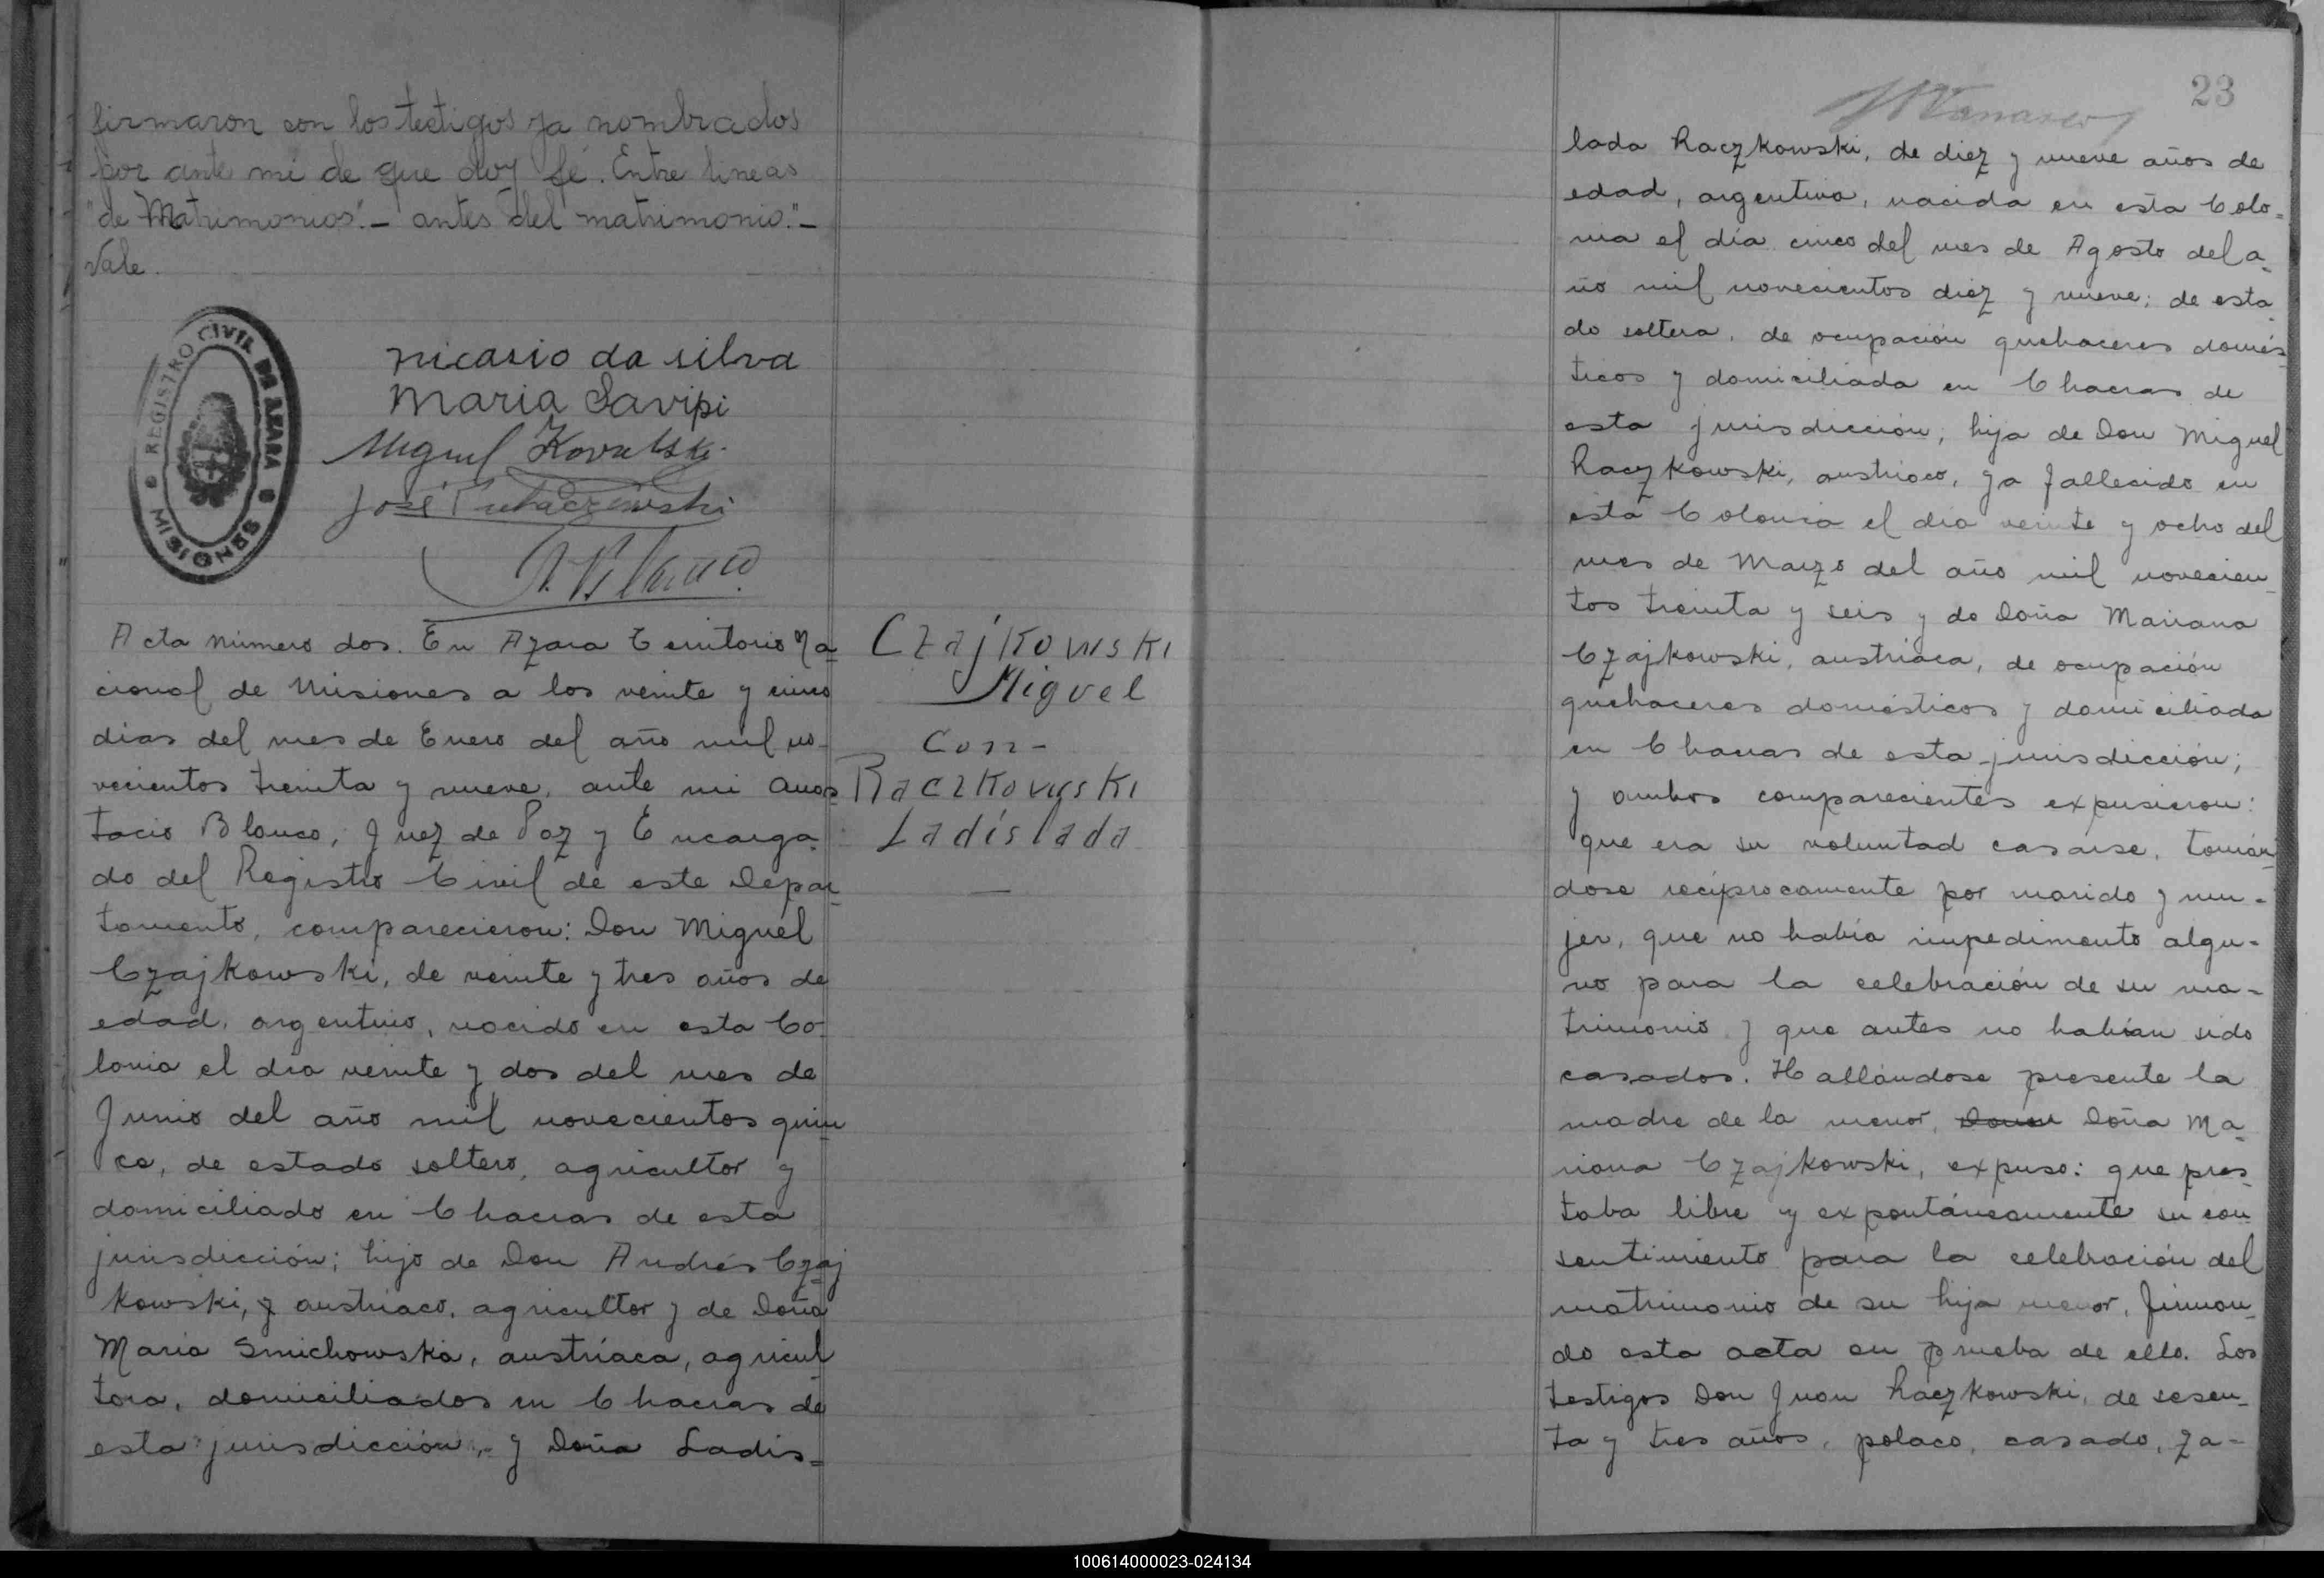 firmaron con los testigos ya nombrados
por ante mi de que doy fé. Entre lineas
"de Matrimonios".- antes del matrimonio."-
Vale.
REGISTRO CIVIL DE AZARA
MISIONES
nicasio da silva
Maria Savipi
Miguel Kovalski
José
Acta número dos. En Azara Territorio Na-
cional de Misiones a los veinte y cinco
dias del mes de Enero del año mil no-
vecientos treinta y nueve, ante mi Anas-
tacio Blanco, Juez de Paz y Encarga-
do del Registro Civil de este Depar-
tamento, comparecieron: Don Miguel
Czajkowski, de veinte y tres años de
edad, argentino, nacido en esta Co-
lonia el dia veinte y dos del mes de
Junio del año mil novecientos quin-
ce, de estado soltero, agricultor y
domiciliado en Chacras de esta
jurisdicción; hijo de Don Andrés Czaj-
kowski, y austriaco, agricultor y de Doña
Maria Smichowska, austríaca, agricul-
tora, domiciliados en Chacras de
esta jurisdicción, y Doña Ladis-
Czajkowski
Miguel
Con-
Raczkowski
Ladislada
23
lada Raczkowski, de diez y nueve años de
edad, argentina, nacida en esta Colo-
nia el día cinco del mes de Agosto del a-
ño mil novecientos diez y nueve; de esta-
do soltera, de ocupación quehaceres domés-
ticos y domiciliada en Chacras de
esta jurisdicción; hija de Don Miguel
Raczkowski, austriaco, ya fallecido en
esta Colonia el dia veinte y ocho del
mes de Marzo del año mil novecien-
tos treinta y seis y de Doña Mariana
Czajkowski, austríaca, de ocupación
quehaceres domésticos y domiciliada
en Chacras de esta jurisdicción;
y ambos comparecientes expusieron:
que era su voluntad casarse, tomán-
dose recíprocamente por marido y mu-
jer, que no había impedimento algu-
no para la celebración de su ma-
trimonio y que antes no habían sido
casados. Hallándose presente la
madre de la menor, Doña Ma-
riana Czajkowski, expuso: que pres-
taba libre y expontáneamente su con-
sentimiento para la celebración del
matrimonio de su hija menor, firman-
do esta acta en prueba de ello. Los
testigos Don Juan Raczkowski, de sesen-
ta y tres años, polaco, casado, za-
100614000023-024134